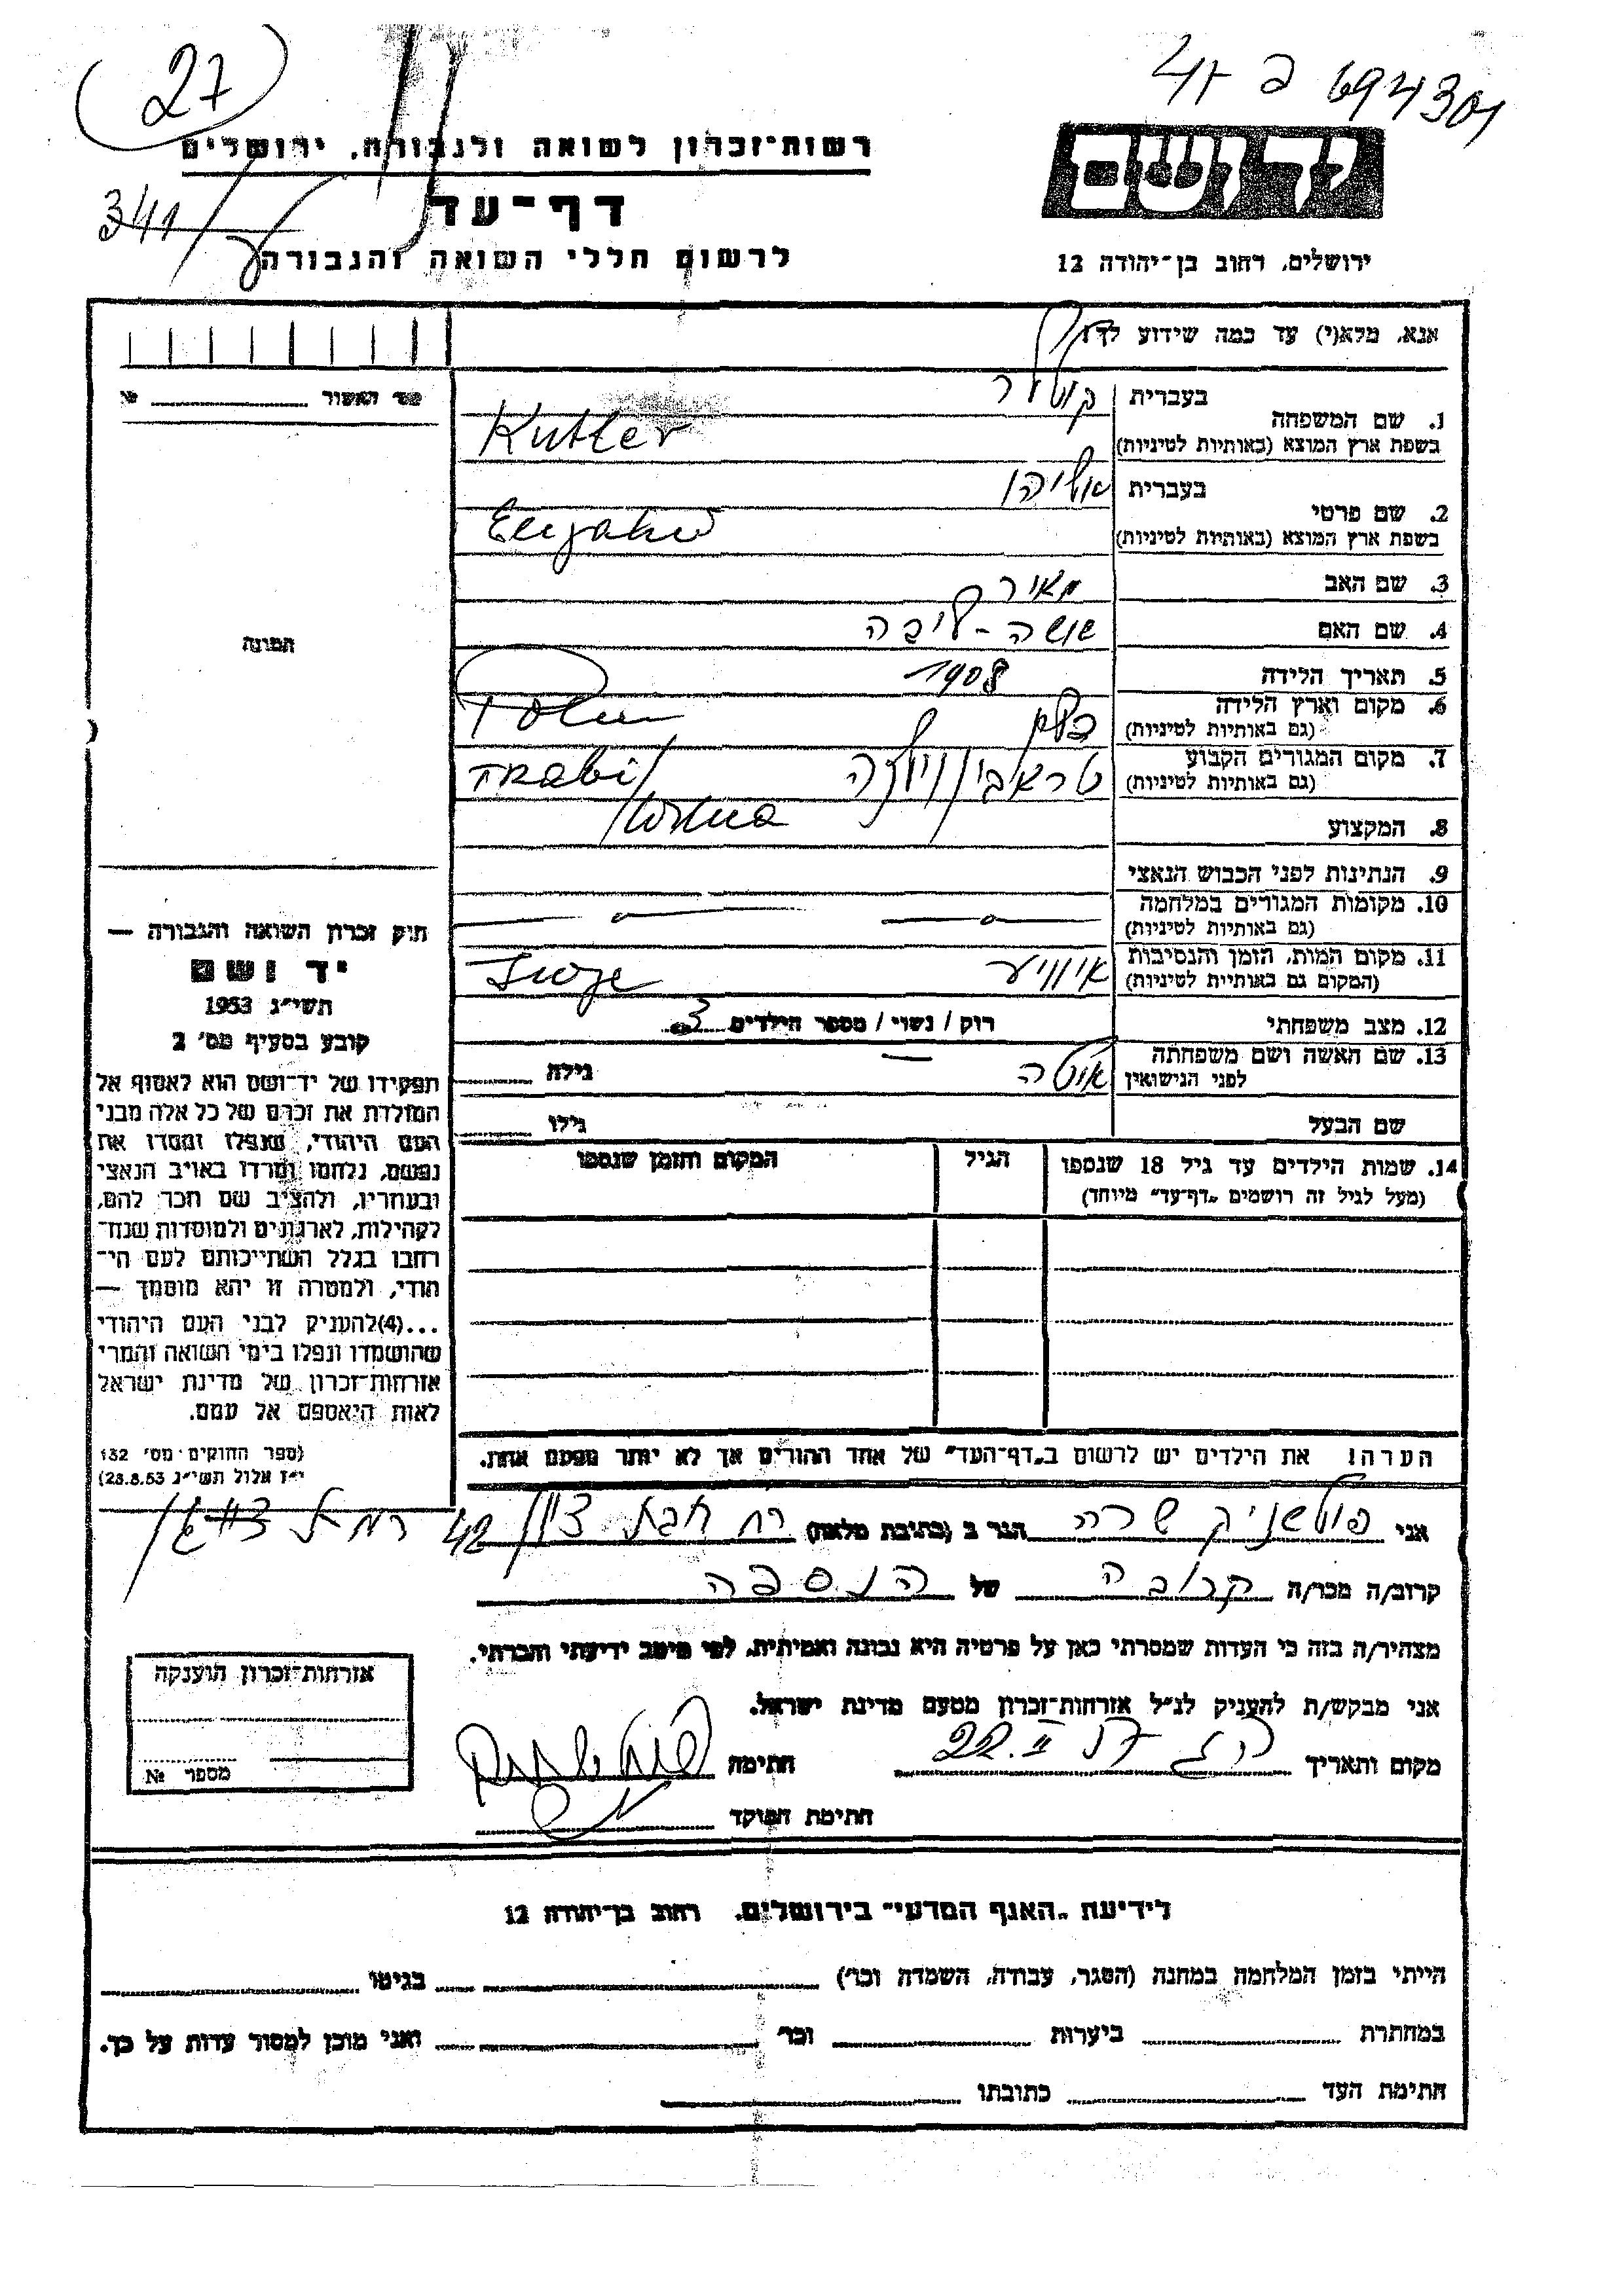 27
694304
341
רשות־זכרון לשואה ולגבורה, ירושלים
יד ושם
דף־עד
לרשום חללי השואה והגבורה
ירושלים, רחוב בן־יהודה 12
אנא, מלא(י) עד כמה שידוע לך
מס' האשור №
1. שם המשפחה
בעברית קוטלר
בשפת ארץ המוצא (באותיות לטיניות) Kutler
2. שם פרטי
בעברית אליהו
בשפת ארץ המוצא (באותיות לטיניות) Elijahu
3. שם האב מאיר
4. שם האם שושה - ליבה
5. תאריך הלידה 1908
6. מקום וארץ הלידה
(גם באותיות לטיניות)
7. מקום המגורים הקבוע
(גם באותיות לטיניות) Trabi
8. המקצוע
9. הנתינות לפני הכבוש הנאצי
10. מקומות המגורים במלחמה
(גם באותיות לטיניות)
11. מקום המות, הזמן והנסיבות
(המקום גם באותיות לטיניות) Iwje
12. מצב משפחתי רוק / נשוי / מספר הילדים 3
13. שם האשה ושם משפחתה
לפני הנישואין גילה
שם הבעל גילו
14. שמות הילדים עד גיל 18 שנספו
(מעל לגיל זה רושמים "דף־עד" מיוחד)
הגיל
המקום והזמן שנספו
התמונה
חוק זכרון השואה והגבורה —
יד ושם
תשי"ג 1953
קובע בסעיף מס' 2
תפקידו של יד־ושם הוא לאסוף אל
המולדת את זכרם של כל אלה מבני
העם היהודי, שנפלו ומסרו את
נפשם, נלחמו ומרדו באויב הנאצי
ובעוזריו, ולהציב שם וזכר להם,
לקהילות, לארגונים ולמוסדות שנח־
רבו בגלל השתייכותם לעם הי־
הודי, ולמטרה זו יהא מוסמך —
...(4) להעניק לבני העם היהודי
שהושמדו ונפלו בימי השואה והמרי
אזרחות־זכרון של מדינת ישראל
לאות היאספם אל עמם.
(ספר החוקים מס' 132
י"ז אלול תשי"ג 28.8.53)
הערה! את הילדים יש לרשום ב"דף־העד" של אחד ההורים אך לא יותר מפעם אחת.
אני שרה הגר ב (כתובת מלאה) רח חבת ציון 42
קרוב/ה מכר/ה קרובה של הנספה
מצהיר/ה בזה כי העדות שמסרתי כאן על פרטיה היא נכונה ואמיתית, לפי מיטב ידיעתי והכרתי.
אני מבקש/ת להעניק לנ"ל אזרחות־זכרון מטעם מדינת ישראל.
מקום ותאריך חתימה
חתימת הפוקד
אזרחות־זכרון הוענקה
מספר №
לידיעת "האגף המדעי" בירושלים, רחוב בן־יהודה 12
הייתי בזמן המלחמה במחנה (הסגר, עבודה, השמדה וכו') בגיטו
במחתרת ביערות וכו' ואני מוכן למסור עדות על כך.
חתימת העד כתובתו